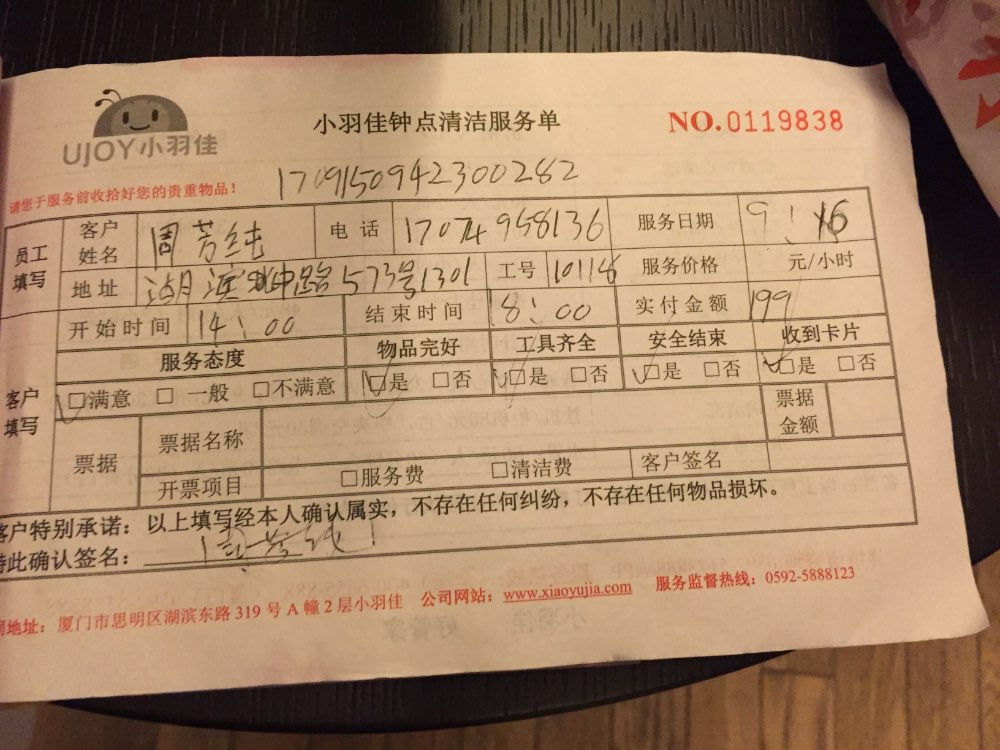 UJOY小羽佳
小羽佳钟点清洁服务单
NO.0119838
请您于服务前收拾好您的贵重物品！
1709150942300282
员工填写 客户姓名 周芳纯 电话 17074958136 服务日期 9.16
地址 湖滨中路573号1301 工号 服务价格 元/小时
客户填写 开始时间 14:00 结束时间 18:00 实付金额 199
服务态度 物品完好 工具齐全 安全结束 收到卡片
☑满意 □一般 □不满意 ☑是 □否 ☑是 □否 ☑是 □否 ☑是 □否
票据 票据名称 票据金额
开票项目 □服务费 □清洁费 客户签名
客户特别承诺：以上填写经本人确认属实，不存在任何纠纷，不存在任何物品损坏。
特此确认签名： 周芳纯
地址：厦门市思明区湖滨东路 319 号 A 幢 2 层小羽佳 公司网站：www.xiaoyujia.com 服务监督热线：0592-5888123